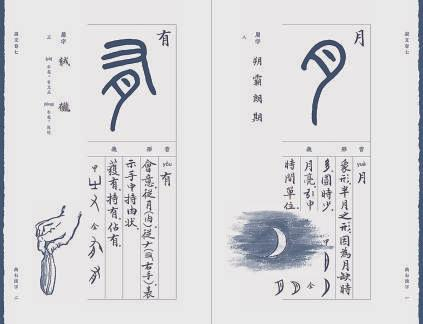 說文卷七
月
音 形 義
yuè 月
象形。半月之形。因為月缺時
多、圓時少。
月亮。引申
時間單位。
甲
金
屬字
朔 霸 朗 期
八
一
說文卷七
有
音 形 義
yǒu 有
會意。從月(肉)從𠂇(又右手)表
示手中持肉狀。
獲有。持有。佔有。
甲
金
屬字
三
二